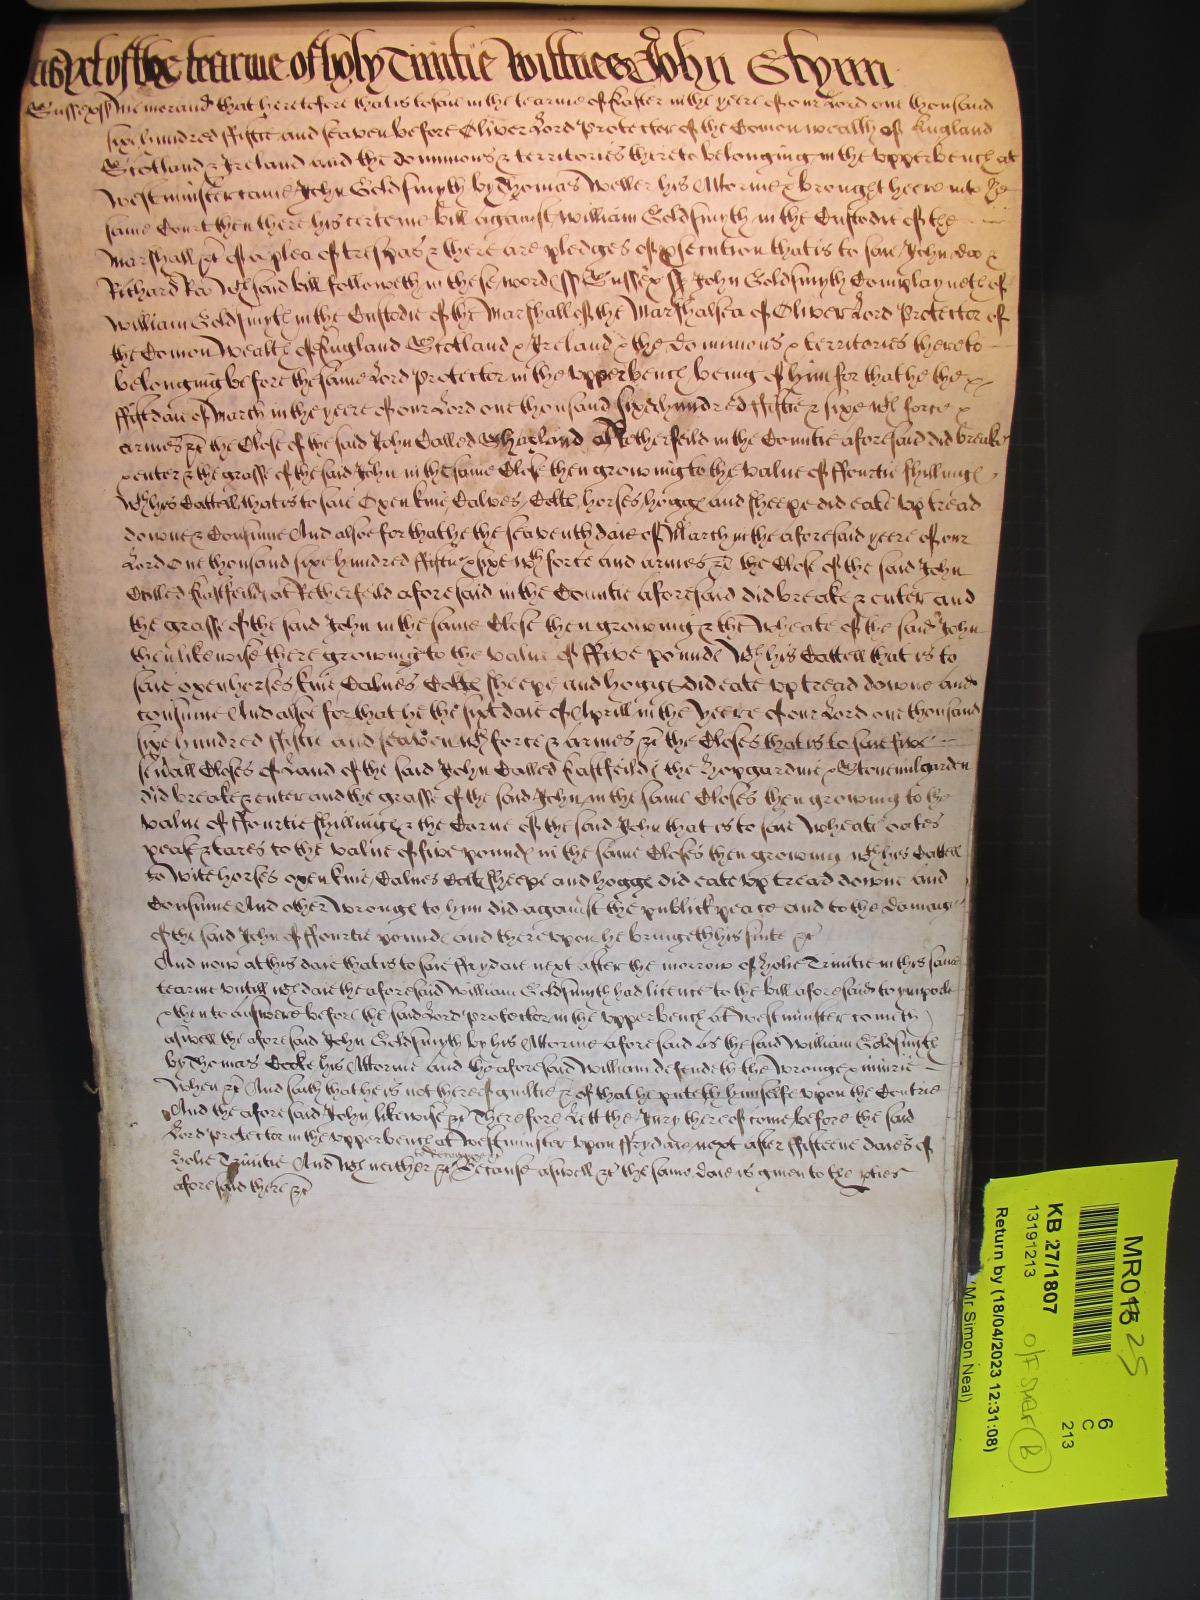 as yet of the tearme of holy Trinitie Wittnes John Glynn
Sussex ss Memorand that heretofore that is to saie in the tearme of Easter in the yeere of our Lord one thousand
sixe hundred fiftie and seaven before Oliver Lord Protector of the Comon wealth of England
Scotland & Ireland and the dominions & territories thereto belonging in the upper bench at
Westminster came John Goldsmyth by Thomas Weller his Attorney & brought heere into the
same Court then there his certeine bill against William Goldsmyth in the Custodie of the
Marshall &c of a plea of trespas & there are pledges of psecution that is to saie John Doo &
Richard Roo wch said bill followeth in these words ss Sussex ss John Goldsmyth Complayneth of
William Goldsmyth in the Custodie of the Marshall of the Marshalsea of Oliver Lord Protector of
the Comon Wealth of England Scotland & Ireland & the dominions & territories thereto
belonging before the same Lord Protector in the upper bench being of him for that he the
fift daie of March in the yeere of our Lord one thousand sixe hundred fiftie & sixe wth force &
armes &c the Close of the said John Called Gharland at Rotherfeild in the Countie aforesaid did breake
& enter & the grasse of the said John in the same Close then growing to the value of ffourtie shillings
wth his Cattell that is to saie Oxen kine Calves Colts horses hoggs and sheepe did eate up tread
downe & Consume And alsoe for that he the seaventh daie of March in the aforesaid yeere of our
Lord One thousand sixe hundred fiftie & sixe wth force and armes &c the Close of the said John
Called Eastfeild at Retherfeild aforesaid in the Countie aforesaid did breake & enter and
the grasse of the said John in the same Close then growing & the Wheate of the said John
then likewise there growing to the value of ffive pounds wth his Cattell that is to
saie oxen horses kine Calves Colts sheepe and hoggs did eate up tread downe and
consume And alsoe for that he the sixt daie of Aprill in the yeere of our Lord one thousand
sixe hundred fiftie and seaven wth force & armes &c the Closes that is to saie five
sevall Closes of Land of the said John Called Eastfeilds the Hopgardine & Stonemilgarden
did breake & enter and the grasse of the said John in the same Closes then growing to the
value of ffourtie shillings & the Corne of the said John that is to saie wheate oates
pease & tares to the value of five pounds in the same Closes then growing wth his Cattell
to wite horses oxen kine Calves Colts sheepe and hoggs did eate up tread downe and
Consume And other wrongs to him did against the publick peace and to the damage
of the said John of ffourtie pounds and thereupon he bringeth his suite &c
And now at this daie that is to saie ffrydaie next after the morrow of holie Trinitie in this same
tearme untill wch daie the aforesaid William Goldsmyth had licence to the bill aforesaid to imparle
& then to answere before the said Lord Protector in the upper bench at Westminster cometh
aswell the aforesaid John Goldsmyth by his Attorney aforesaid as the said William Goldsmyth
by Thomas Cocke his Attornie And the aforesaid William defendeth the Wrongs & iniurie
When &c And saith that he is not thereof guiltie & of that he putteth himselfe upon the Contrie
And the aforesaid John likewise &c Therefore Lett the Jury thereof come before the said
Lord Protector in the upper bench at Westminster upon ffrydaie next after fifteene daies of
holie Trinitie And wch neither &c to Recognize &c Because aswell &c the same daie is given to the pties
aforesaid there &c
MR018 25
6
C
213
KB 27/1807
13191213
Return by (18/04/2023 12:31:08)
(Mr Simon Neal)